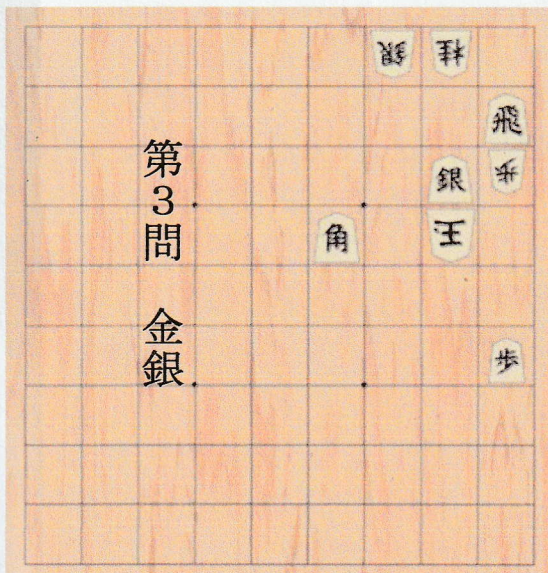 第3問 金銀
銀 桂
飛
銀 歩
角 王
歩